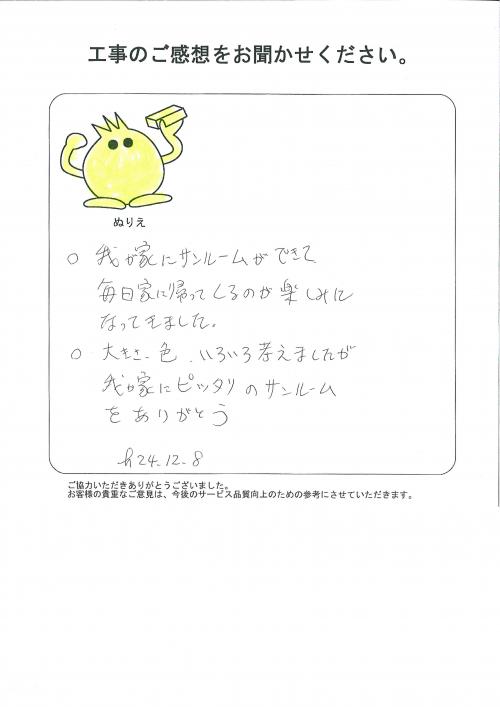 工事のご感想をお聞かせください。
ぬりえ
○ 我が家にサンルームができて
毎日家に帰ってくるのが楽しみに
なってきました。
○ 大きさ、色、いろいろ考えましたが
我が家にピッタリのサンルーム
をありがとう
h24.12.8
ご協力いただきありがとうございました。
お客様の貴重なご意見は、今後のサービス品質向上のための参考にさせていただきます。